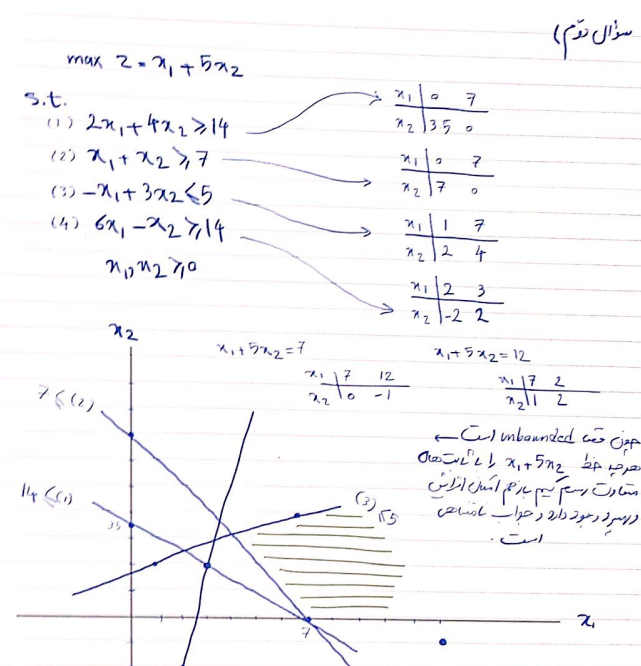 سؤال دوّم)
max z = x₁ + 5x₂
s.t.
(1) 2x₁ + 4x₂ ≥ 14
(2) x₁ + x₂ ≥ 7
(3) -x₁ + 3x₂ ≤ 5
(4) 6x₁ - x₂ ≥ 14
x₁, x₂ ≥ 0
x₁ | 0 7
x₂ | 3.5 0
x₁ | 0 7
x₂ | 7 0
x₁ | 1 7
x₂ | 2 4
x₁ | 2 3
x₂ | -2 2
x₁ + 5x₂ = 7
x₁ | 7 12
x₂ | 0 -1
x₁ + 5x₂ = 12
x₁ | 7 2
x₂ | 1 2
چون فضا unbounded است ←
هرچه خط x₁ + 5x₂ را با ثابت‌های
متفاوت رسم کنیم باز هم امکان افزایش
وجود دارد و جواب نامتناهی
است.
x₂
7 ≤ (2)
14 ≤ (1)
3.5
(3) ≤ 5
7
x₁